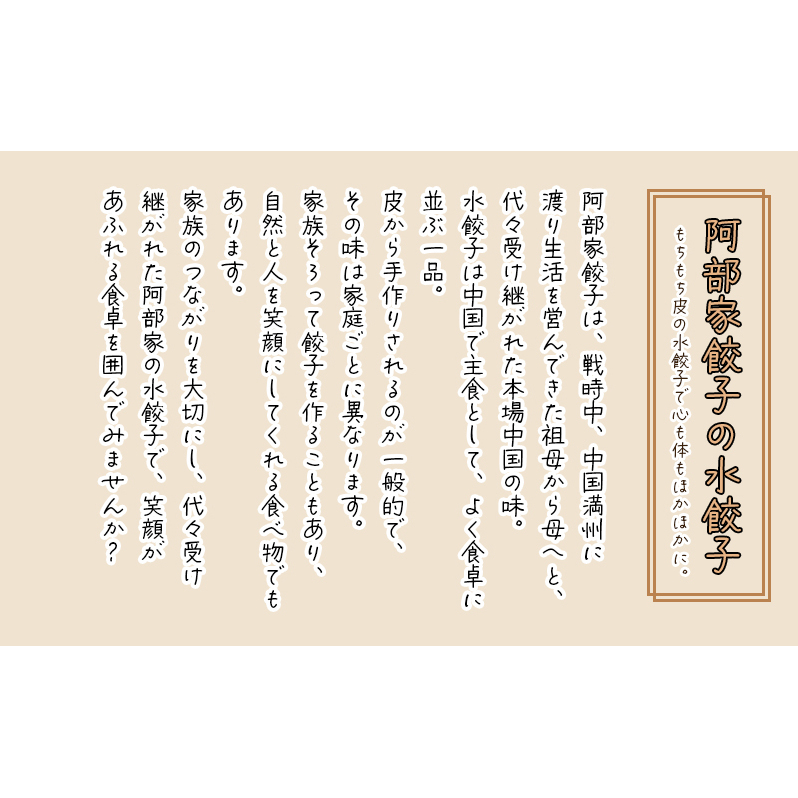 阿部家餃子の水餃子
もちもち皮の水餃子で心も体もほかほかに。
阿部家餃子は、戦時中、中国満州に
渡り生活を営んできた祖母から母へと、
代々受け継がれた本場中国の味。
水餃子は中国で主食として、よく食卓に
並ぶ一品。
皮から手作りされるのが一般的で、
その味は家庭ごとに異なります。
家族そろって餃子を作ることもあり、
自然と人を笑顔にしてくれる食べ物でも
あります。
家族のつながりを大切にし、代々受け
継がれた阿部家の水餃子で、笑顔が
あふれる食卓を囲んでみませんか？